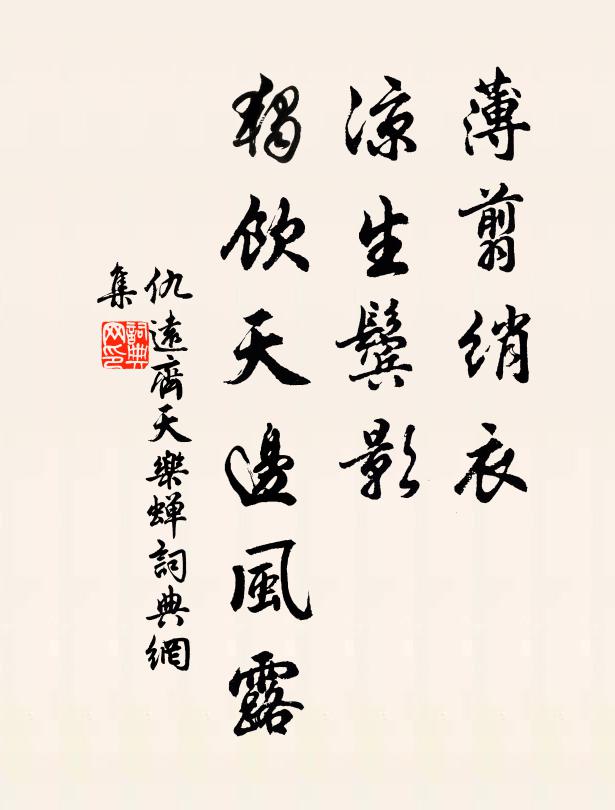 薄翦綃衣
涼生鬢影
獨飲天邊風露
仇遠齊天樂蟬詞典網
集
詞典網印